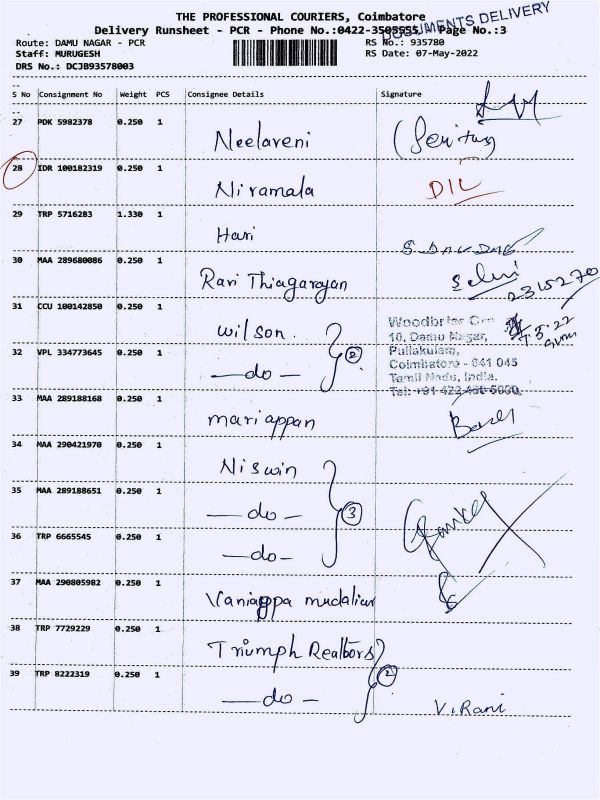 THE PROFESSIONAL COURIERS, Coimbatore
DOCUMENTS DELIVERY
Delivery Runsheet - PCR - Phone No.:0422-3505955 / Page No.:3
Route: DAMU NAGAR - PCR RS No.: 935780
Staff: MURUGESH RS Date: 07-May-2022
DRS No.: DCJB93578003
S No Consignment No Weight PCS Consignee Details Signature
27 PDK 5982378 0.250 1 Neelaveni
28 IDR 100182319 0.250 1 Niramala DIL
29 TRP 5716283 1.330 1 Hari
30 MAA 289680086 0.250 1 Ravi Thiagarayan Selvi
2315270
31 CCU 100142850 0.250 1 wilson. 2
Woodbriar
10, Damu Nagar,
Puliakulam,
32 VPL 334773645 0.250 1 —do—
Coimbatore - 641 045
Tamil Nadu, India.
33 MAA 289188168 0.250 1 mariappan
34 MAA 290421970 0.250 1 Niswin
35 MAA 289188651 0.250 1 —do— 3
36 TRP 6665545 0.250 1 —do—
37 MAA 290805982 0.250 1 Vaniappa mudaliar
38 TRP 7729229 0.250 1 Triumph Realtors
39 TRP 8222319 0.250 1 —do— 2 V. Rani